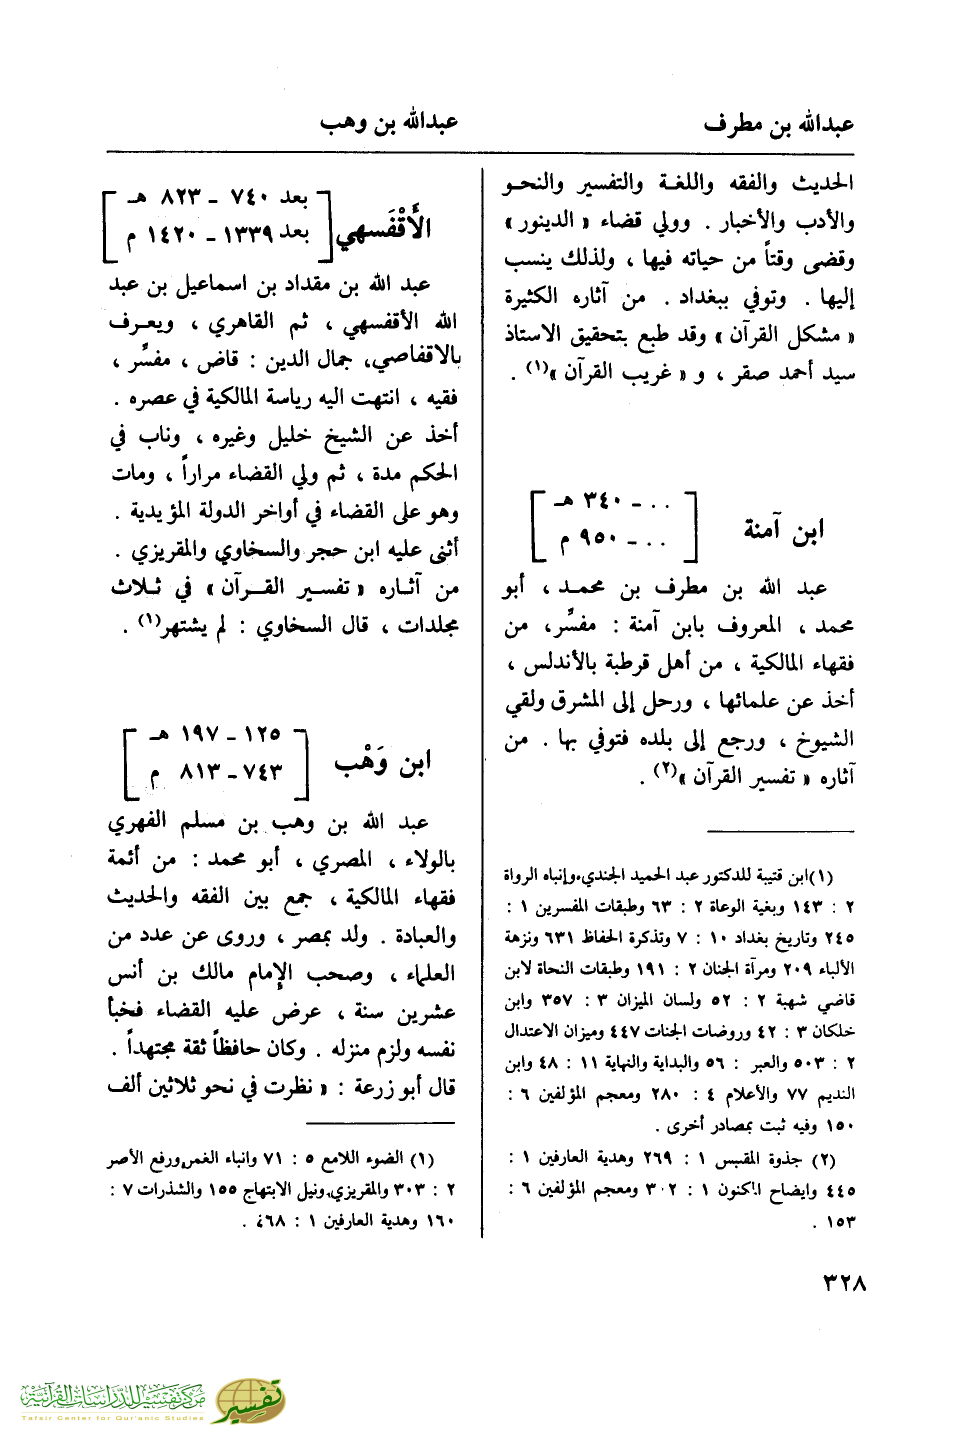 عبدالله بن مطرف
عبدالله بن وهب
الحديث والفقه واللغة والتفسير والنحو
والأدب والأخبار . وولي قضاء « الدينور »
وقضى وقتاً من حياته فيها ، ولذلك ينسب
إليها . وتوفي ببغداد . من آثاره الكثيرة
« مشكل القرآن » وقد طبع بتحقيق الاستاذ
سيد أحمد صقر ، و « غريب القرآن »(١) .
ابن آمنة
. . . ـ ٣٤٠ هـ
. . . ـ ٩٥٠ م
عبد الله بن مطرف بن محمد ، أبو
محمد ، المعروف بابن آمنة : مفسِّر، من
فقهاء المالكية ، من أهل قرطبة بالأندلس ،
أخذ عن علمائها ، ورحل إلى المشرق ولقي
الشيوخ ، ورجع إلى بلده فتوفي بها . من
آثاره « تفسير القرآن »(٢) .
(١)ابن قتيبة للدكتور عبد الحميد الجندي،وإنباه الرواة
٢ : ١٤٣ وبغية الوعاة ٢ : ٦٣ وطبقات المفسرين ١ :
٢٤٥ وتاريخ بغداد ١٠ : ٧ وتذكرة الحفاظ ٦٣١ ونزهة
الألباء ٢٠٩ ومرآة الجنان ٢ : ١٩١ وطبقات النحاة لابن
قاضي شهبة ٢ : ٥٢ ولسان الميزان ٣ : ٣٥٧ وابن
خلكان ٣ : ٤٢ وروضات الجنات ٤٤٧ وميزان الاعتدال
٢ : ٥٠٣ والعبر : ٥٦ والبداية والنهاية ١١ : ٤٨ وابن
النديم ٧٧ والأعلام ٤ : ٢٨٠ ومعجم المؤلفين ٦ :
١٥٠ وفيه ثبت بمصادر أخرى .
(٢) جذوة المقبس ١ : ٢٦٩ وهدية العارفين ١ :
٤٤٥ وايضاح المكنون ١ : ٣٠٢ ومعجم المؤلفين ٦ :
١٥٣ .
الأَقْفَسهي
بعد ٧٤٠ ـ ٨٢٣ هـ
بعد ١٣٣٩ ـ ١٤٢٠ م
عبد الله بن مقداد بن اسماعيل بن عبد
الله الأقفسهي ، ثم القاهري ، ويعرف
بالاقفاصي، جمال الدين : قاض ، مفسِّر ،
فقيه ، انتهت اليه رياسة المالكية في عصره .
أخذ عن الشيخ خليل وغيره ، وناب في
الحكم مدة ، ثم ولي القضاء مراراً ، ومات
وهو على القضاء في أواخر الدولة المؤيدية .
أثنى عليه ابن حجر والسخاوي والمقريزي .
من آثاره « تفسير القرآن » في ثلاث
مجلدات ، قال السخاوي : لم يشتهر(١) .
ابن وَهْب
١٢٥ ـ ١٩٧ هـ
٧٤٣ ـ ٨١٣ م
عبد الله بن وهب بن مسلم الفهري
بالولاء ، المصري ، أبو محمد : من أئمة
فقهاء المالكية ، جمع بين الفقه والحديث
والعبادة . ولد بمصر ، وروى عن عدد من
العلماء ، وصحب الإمام مالك بن أنس
عشرين سنة ، عرض عليه القضاء فخبأ
نفسه ولزم منزله . وكان حافظاً ثقة مجتهداً .
قال أبو زرعة : « نظرت في نحو ثلاثين ألف
(١) الضوء اللامع ٥ : ٧١ وانباء الغمر،ورفع الأصر
٢ : ٣٠٣ والمقريزي،ونيل الابتهاج ١٥٥ والشذرات ٧ :
١٦٠ وهدية العارفين ١ : ٤٦٨ .
٣٢٨
مركز تفسير للدراسات القرآنية
Tafsir Center for Qur'anic Studies
تفسير